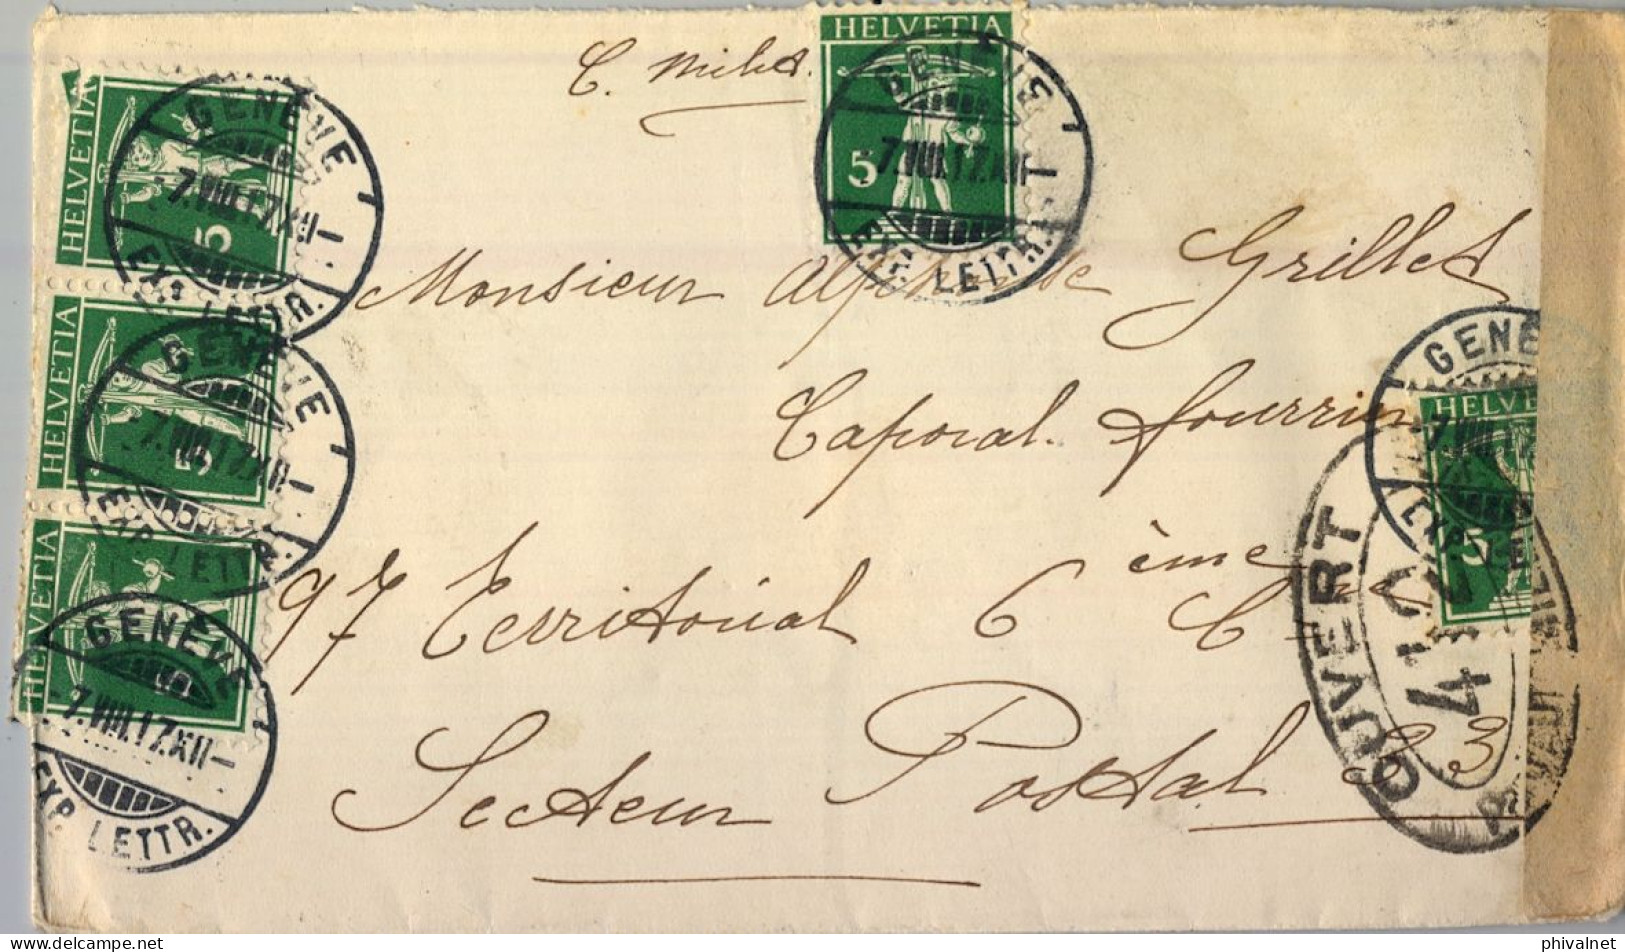 C. Milet.
HELVETIA
5
GENÈVE 1
-7.VIII.17.XII-
EXP. LETTR.
HELVETIA
5
GENÈVE 1
-7.VIII.17.XII-
EXP. LETTR.
HELVETIA
5
GENÈVE 1
-7.VIII.17.XII-
EXP. LETTR.
HELVETIA
GENÈVE
-7.VIII.17.XII-
EXP. LETTR.
Monsieur Alphonse Grillet
Caporal fourrier
97 Territorial 6 ème Cie
Secteur Postal 23
GENÈ
HELVE
5
-7.VIII.17
EXP. LE
OUVERT
412
delcampe.net
phivalnet